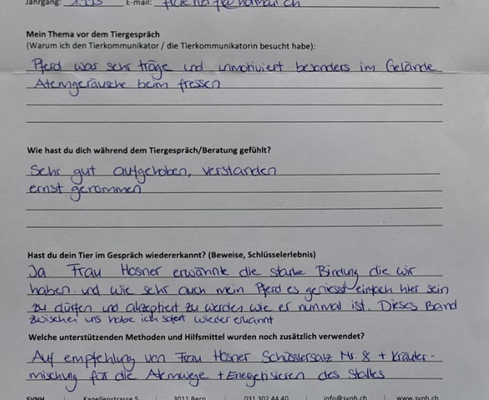 Jahrgang: E-mail:
Mein Thema vor dem Tiergespräch
(Warum ich den Tierkommunikator / die Tierkommunikatorin besucht habe):
Pferd war sehr träge und unmotiviert besonders im Gelände
Atemgeräusche beim fressen
Wie hast du dich während dem Tiergespräch/Beratung gefühlt?
Sehr gut aufgehoben, verstanden
ernst genommen
Hast du dein Tier im Gespräch wiedererkannt? (Beweise, Schlüsselerlebnis)
Ja Frau Hosner erwähnte die starke Bindung die wir
haben und wie sehr auch mein Pferd es geniesst einfach hier sein
zu dürfen und akzeptiert zu werden wie er nunmal ist. Dieses Band
zwischen uns habe ich sofort wieder erkannt
Welche unterstützenden Methoden und Hilfsmittel wurden noch zusätzlich verwendet?
Auf empfehlung von Frau Hosner Schüsslersalz Nr 8 + Kräuter-
mischung für die Atemwege + Energetisieren des Stalles
SVNH | Kapellenstrasse 5 | 3011 Bern | 031 302 44 40 | info@svnh.ch | www.svnh.ch